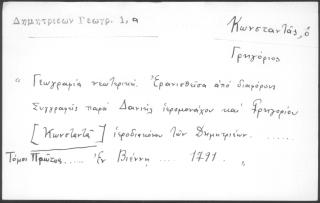 Δημητριεων Γεωγρ. 1,α
Κωνσταντᾶς, ὁ
Γρηγόριος
" Γεωγραφία νεωτερική. Ἐρανισθεῖσα ἀπό διαφόρους
Συγγραφεῖς παρά Δανιήλ ἱερομονάχου καί Γρηγορίου
[Κωνσταντᾶ] ἱεροδιακόνου τῶν Δημητριέων. ......
Τόμος Πρῶτος..... Ἐν Βιέννῃ .... 1791. "